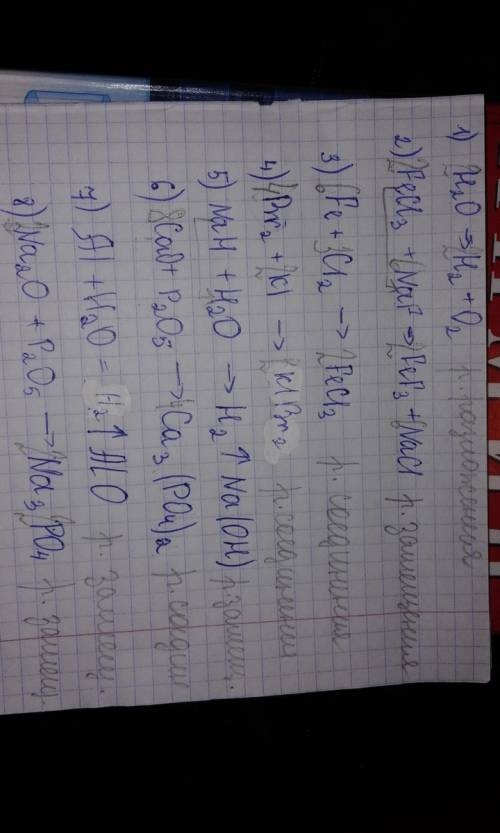 1) 2H₂O ⇒ 2H₂ + O₂ р. разложения
2) 2FeCl₃ + 6NaF ⇒ 2FeF₃ + 6NaCl р. замещения
3) 6Fe + 3Cl₂ → 2FeCl₃ р. соединения
4) 4Br₂ + 2KI → 2KIBr₂ р. соединения
5) NaH + H₂O → H₂↑ Na(OH) р. замещ.
6) 8CaO + P₂O₅ → Ca₃(PO₄)₂ р. соедин
7) Al + H₂O = H₂↑ AlO р. замещ.
8) Na₂O + P₂O₅ → 2Na₃PO₄ р. замещ.